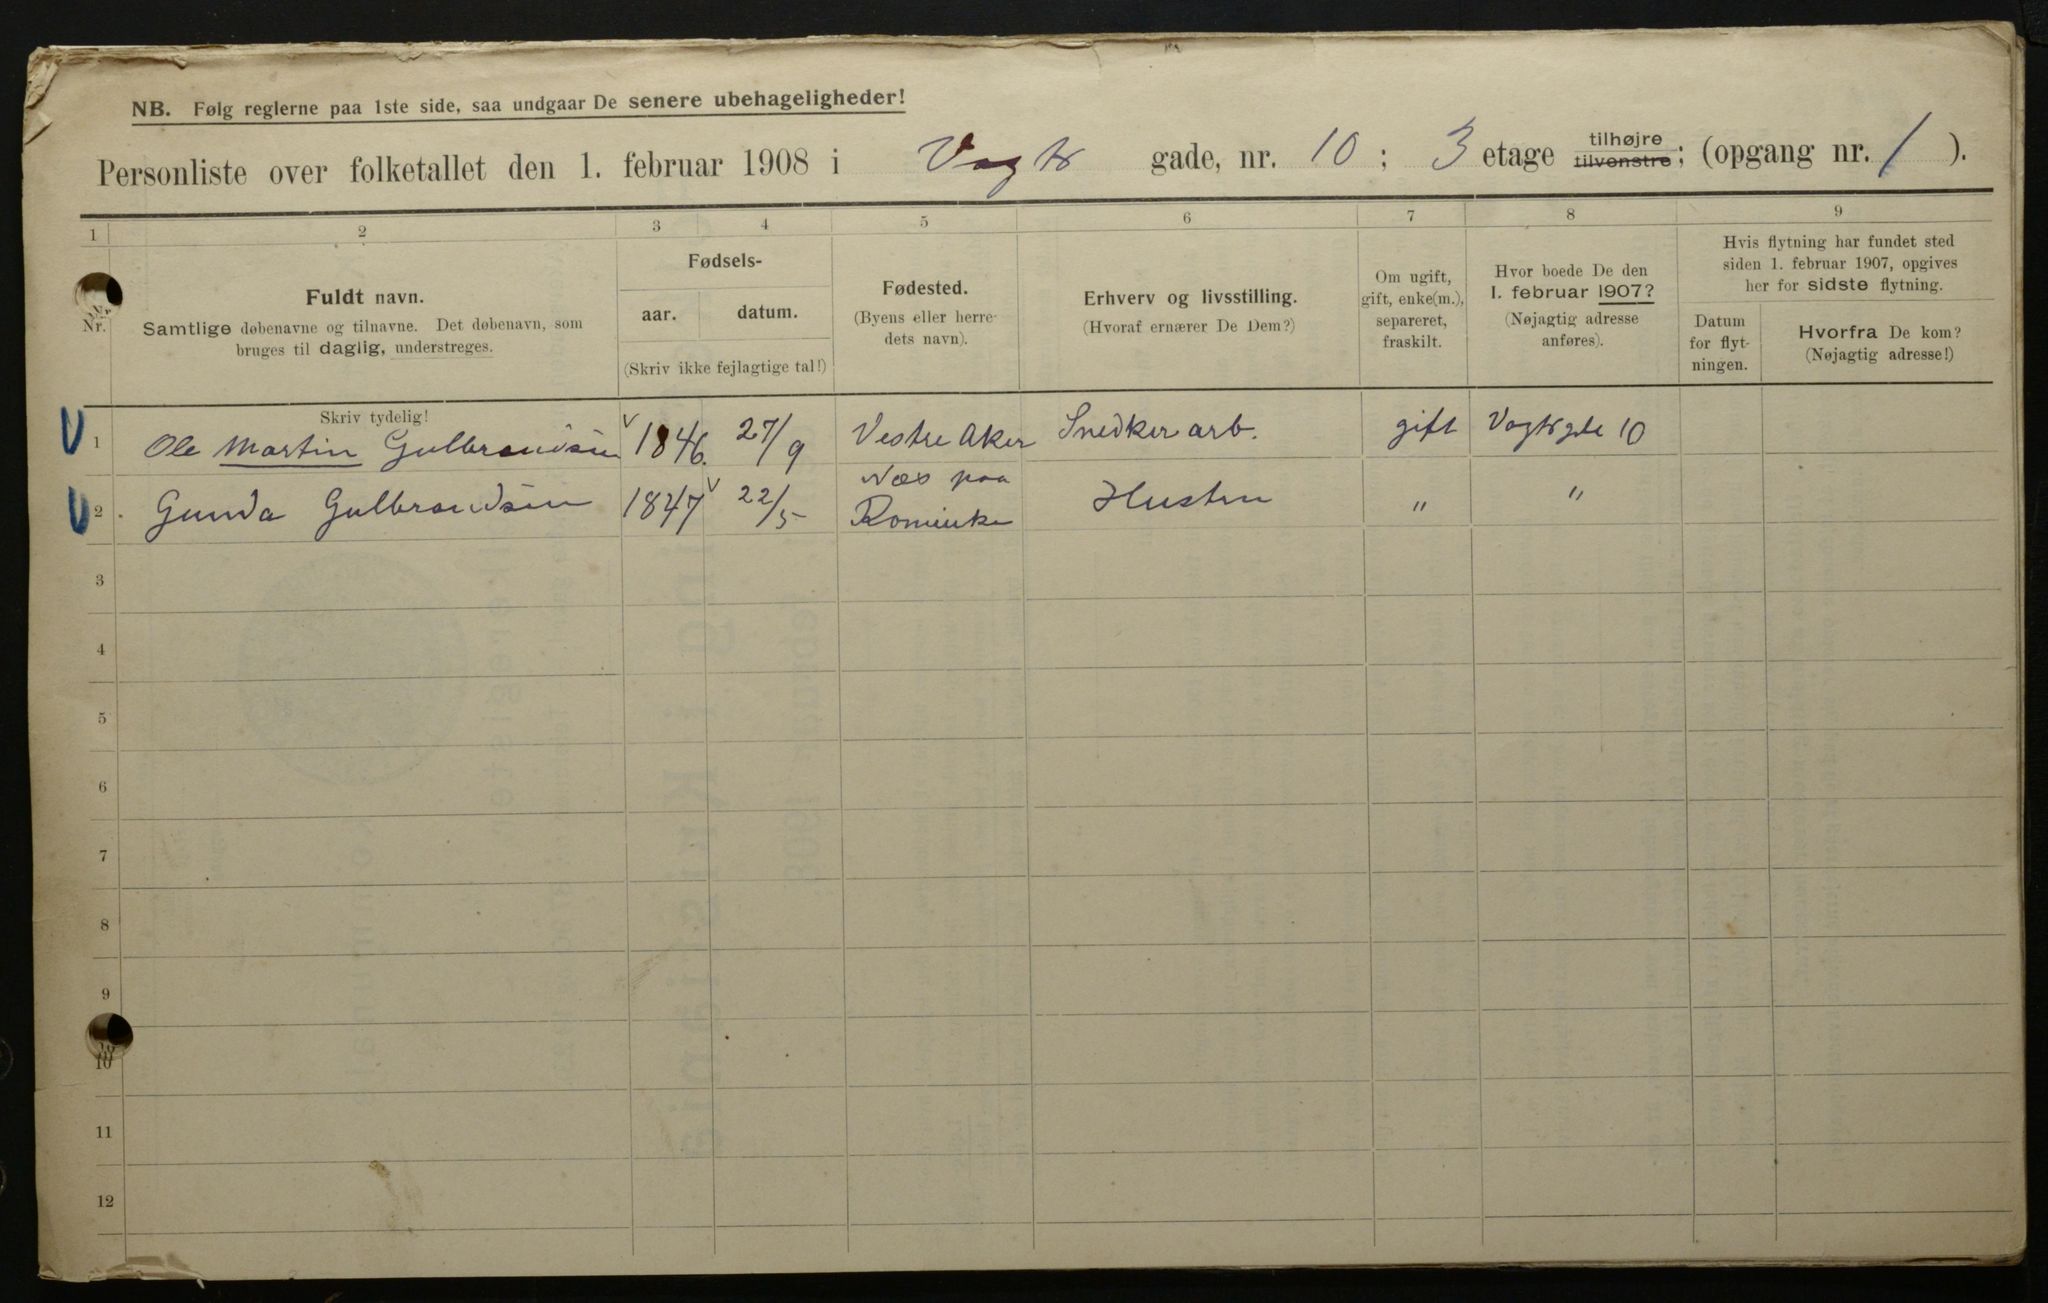 NB. Følg reglerne paa 1ste side, saa undgaar De senere ubehageligheder!
Personliste over folketallet den 1. februar 1908 i Vogts gade, nr. 10 ; 3 etage tilhøjre tilvenstre; (opgang nr. 1 ).
1 2 3 4 5 6 7 8 9
Nr.
Fuldt navn.
Samtlige døbenavne og tilnavne. Det døbenavn, som
bruges til daglig, understreges.
Skriv tydelig!
Fødsels-
aar. datum.
(Skriv ikke fejlagtige tal!)
Fødested.
(Byens eller herre-
dets navn).
Erhverv og livsstilling.
(Hvoraf ernærer De Dem?)
Om ugift,
gift, enke(m.),
separeret,
fraskilt.
Hvor boede De den
1. februar 1907?
(Nøjagtig adresse
anføres).
Hvis flytning har fundet sted
siden 1. februar 1907, opgives
her for sidste flytning.
Datum
for flyt-
ningen.
Hvorfra De kom?
(Nøjagtig adresse!)
1 Ole Martin Gulbrandsen 1846. 27/9 Vestre Aker Snedker arb. gift Vogts gde 10
2 Gunda Gulbrandsen 1847 22/5 Næs paa Romerike Hustru " "
3
4
5
6
7
8
9
10
11
12